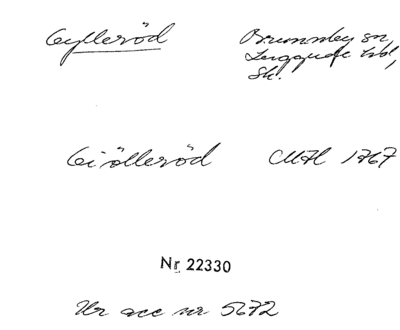 Gylleröd Brunnby sn,
Luggude hd,
Sk.
Giölleröd CMH 1767
Nr 22330
Ur acc nr 5672